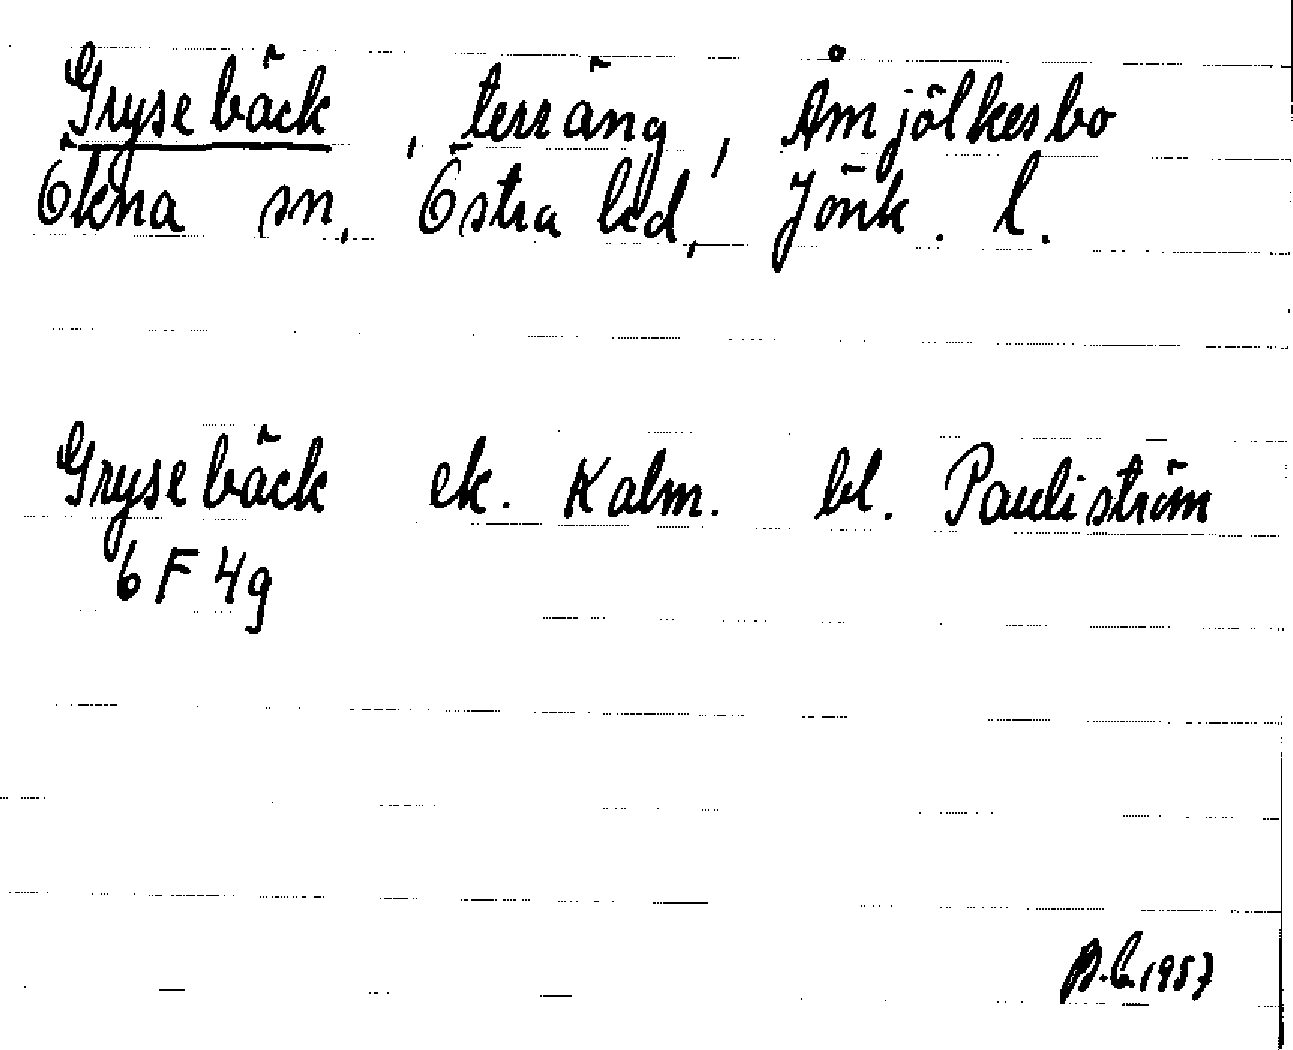 Grysebäck, terräng, Åmjölkesbo
Ökna sn, Östra hd, Jönk. l.
Grysebäck ek. Kalm. bl. Pauliström
6 F 4g
1957